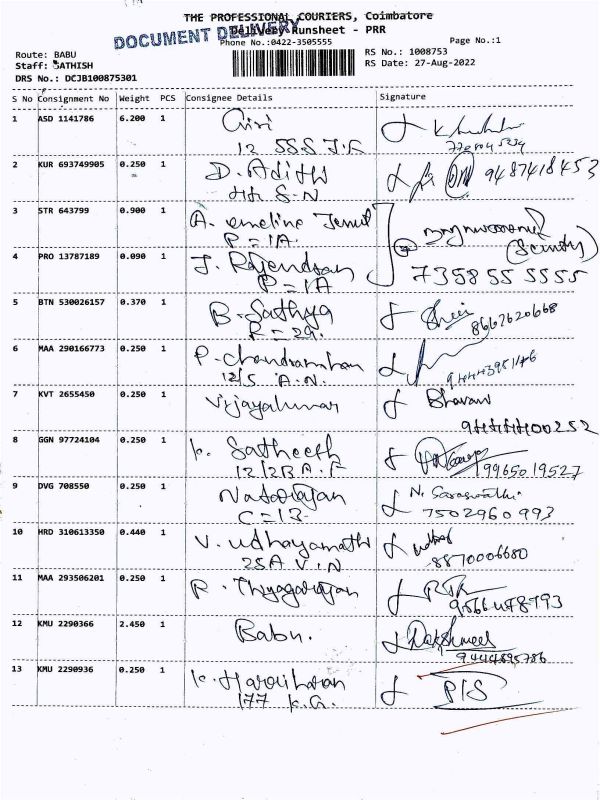 THE PROFESSIONAL COURIERS, Coimbatore
DOCUMENT DELIVERY
Delivery Runsheet - PRR
Phone No.:0422-3505555
Page No.:1
Route: BABU
RS No.: 1008753
Staff: SATHISH
RS Date: 27-Aug-2022
DRS No.: DCJB100875301
S No Consignment No Weight PCS Consignee Details Signature
1 ASD 1141786 6.200 1 Giri
12 SSS
2 KUR 693749905 0.250 1 D. Adith 9487418453
S-N
3 STR 643799 0.900 1 A. emeline
P = 1A. (Scurity)
4 PRO 13787189 0.090 1 J. Rajendran 735855 5555
P = 1A
5 BTN 530026157 0.370 1 B. Sathya
R = 29. 8667620668
6 MAA 290166773 0.250 1 P. chandramohan
12/5 A.N.
7 KVT 2655450 0.250 1 Vijayakumar Bhavani
9444400252
8 GGN 97724104 0.250 1 K. Satheesh
12/2B A.F 9965019527
9 DVG 708550 0.250 1 Natarajan N. Saraswathi
C = 13 7502960993
10 HRD 310613350 0.440 1 V. udhayamathi
25A V.N 8870006680
11 MAA 293506201 0.250 1 R. Thyagarajan
9566478793
12 KMU 2290366 2.450 1 Babu.
9444895786
13 KMU 2290936 0.250 1 K. Hariharan
177 K.G.